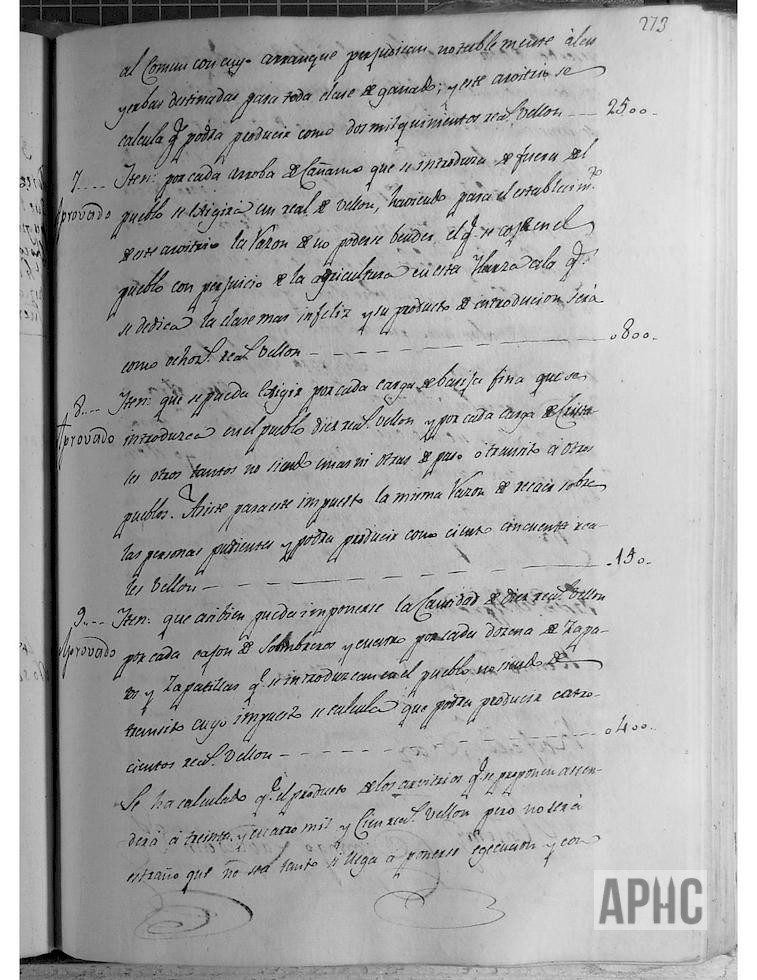 273
al Comun con cuyo arranque perjudican notablemente à las
yerbas destinadas para toda clase de ganado; y este arvitrio se
calcula q.e podra producir como dos mil quinientos real.s Vellon --- 2500.
7.... Iten: por cada arroba de Cañamo que se introduzca de fuera del
Aprovado pueblo se exigirá un real de vellon, haviendo para el establecim.to
de este arvitrio la Razon de no poderse vender el q.e se coje en el
pueblo con perjuicio de la agricultura en esta q.e
se dedica la clase mas infeliz y su producto de introducion será
como ochoz.s real.s Vellon --- 0800.
8.... Iten: que se pueda exigir por cada carga de bagisa fina que se
Aprovado introduzca en el pueblo diez real.s Vellon y por cada carga de Crista
les otros tantos no siendo unas ni otras de paso o transito a otros
pueblos. Asiste para este impuesto la misma Razon de recaer sobre
las personas pudientes y podra producir como ciento cincuenta rea-
les Vellon --- 150.
9.... Iten: que asi bien pueda imponerse la Cantidad de diez real.s Vellon
Aprovado por cada cajon de Sombreros y cuatro por cada dozena de Zapa-
tos y Zapatillas q.e se introduzcan en el pueblo no siendo de
transito cuyo impuesto se calcula que podra producir catro-
cientos real.s Vellon --- 0400.
Se ha calculado q.e el producto de los arvitrios q.e se proponen ascen-
derá á treinta y cuatro mil y Cien real.s Vellon pero no será
estraño que no sea tanto si llega á ponerse egecucion y con
APHC